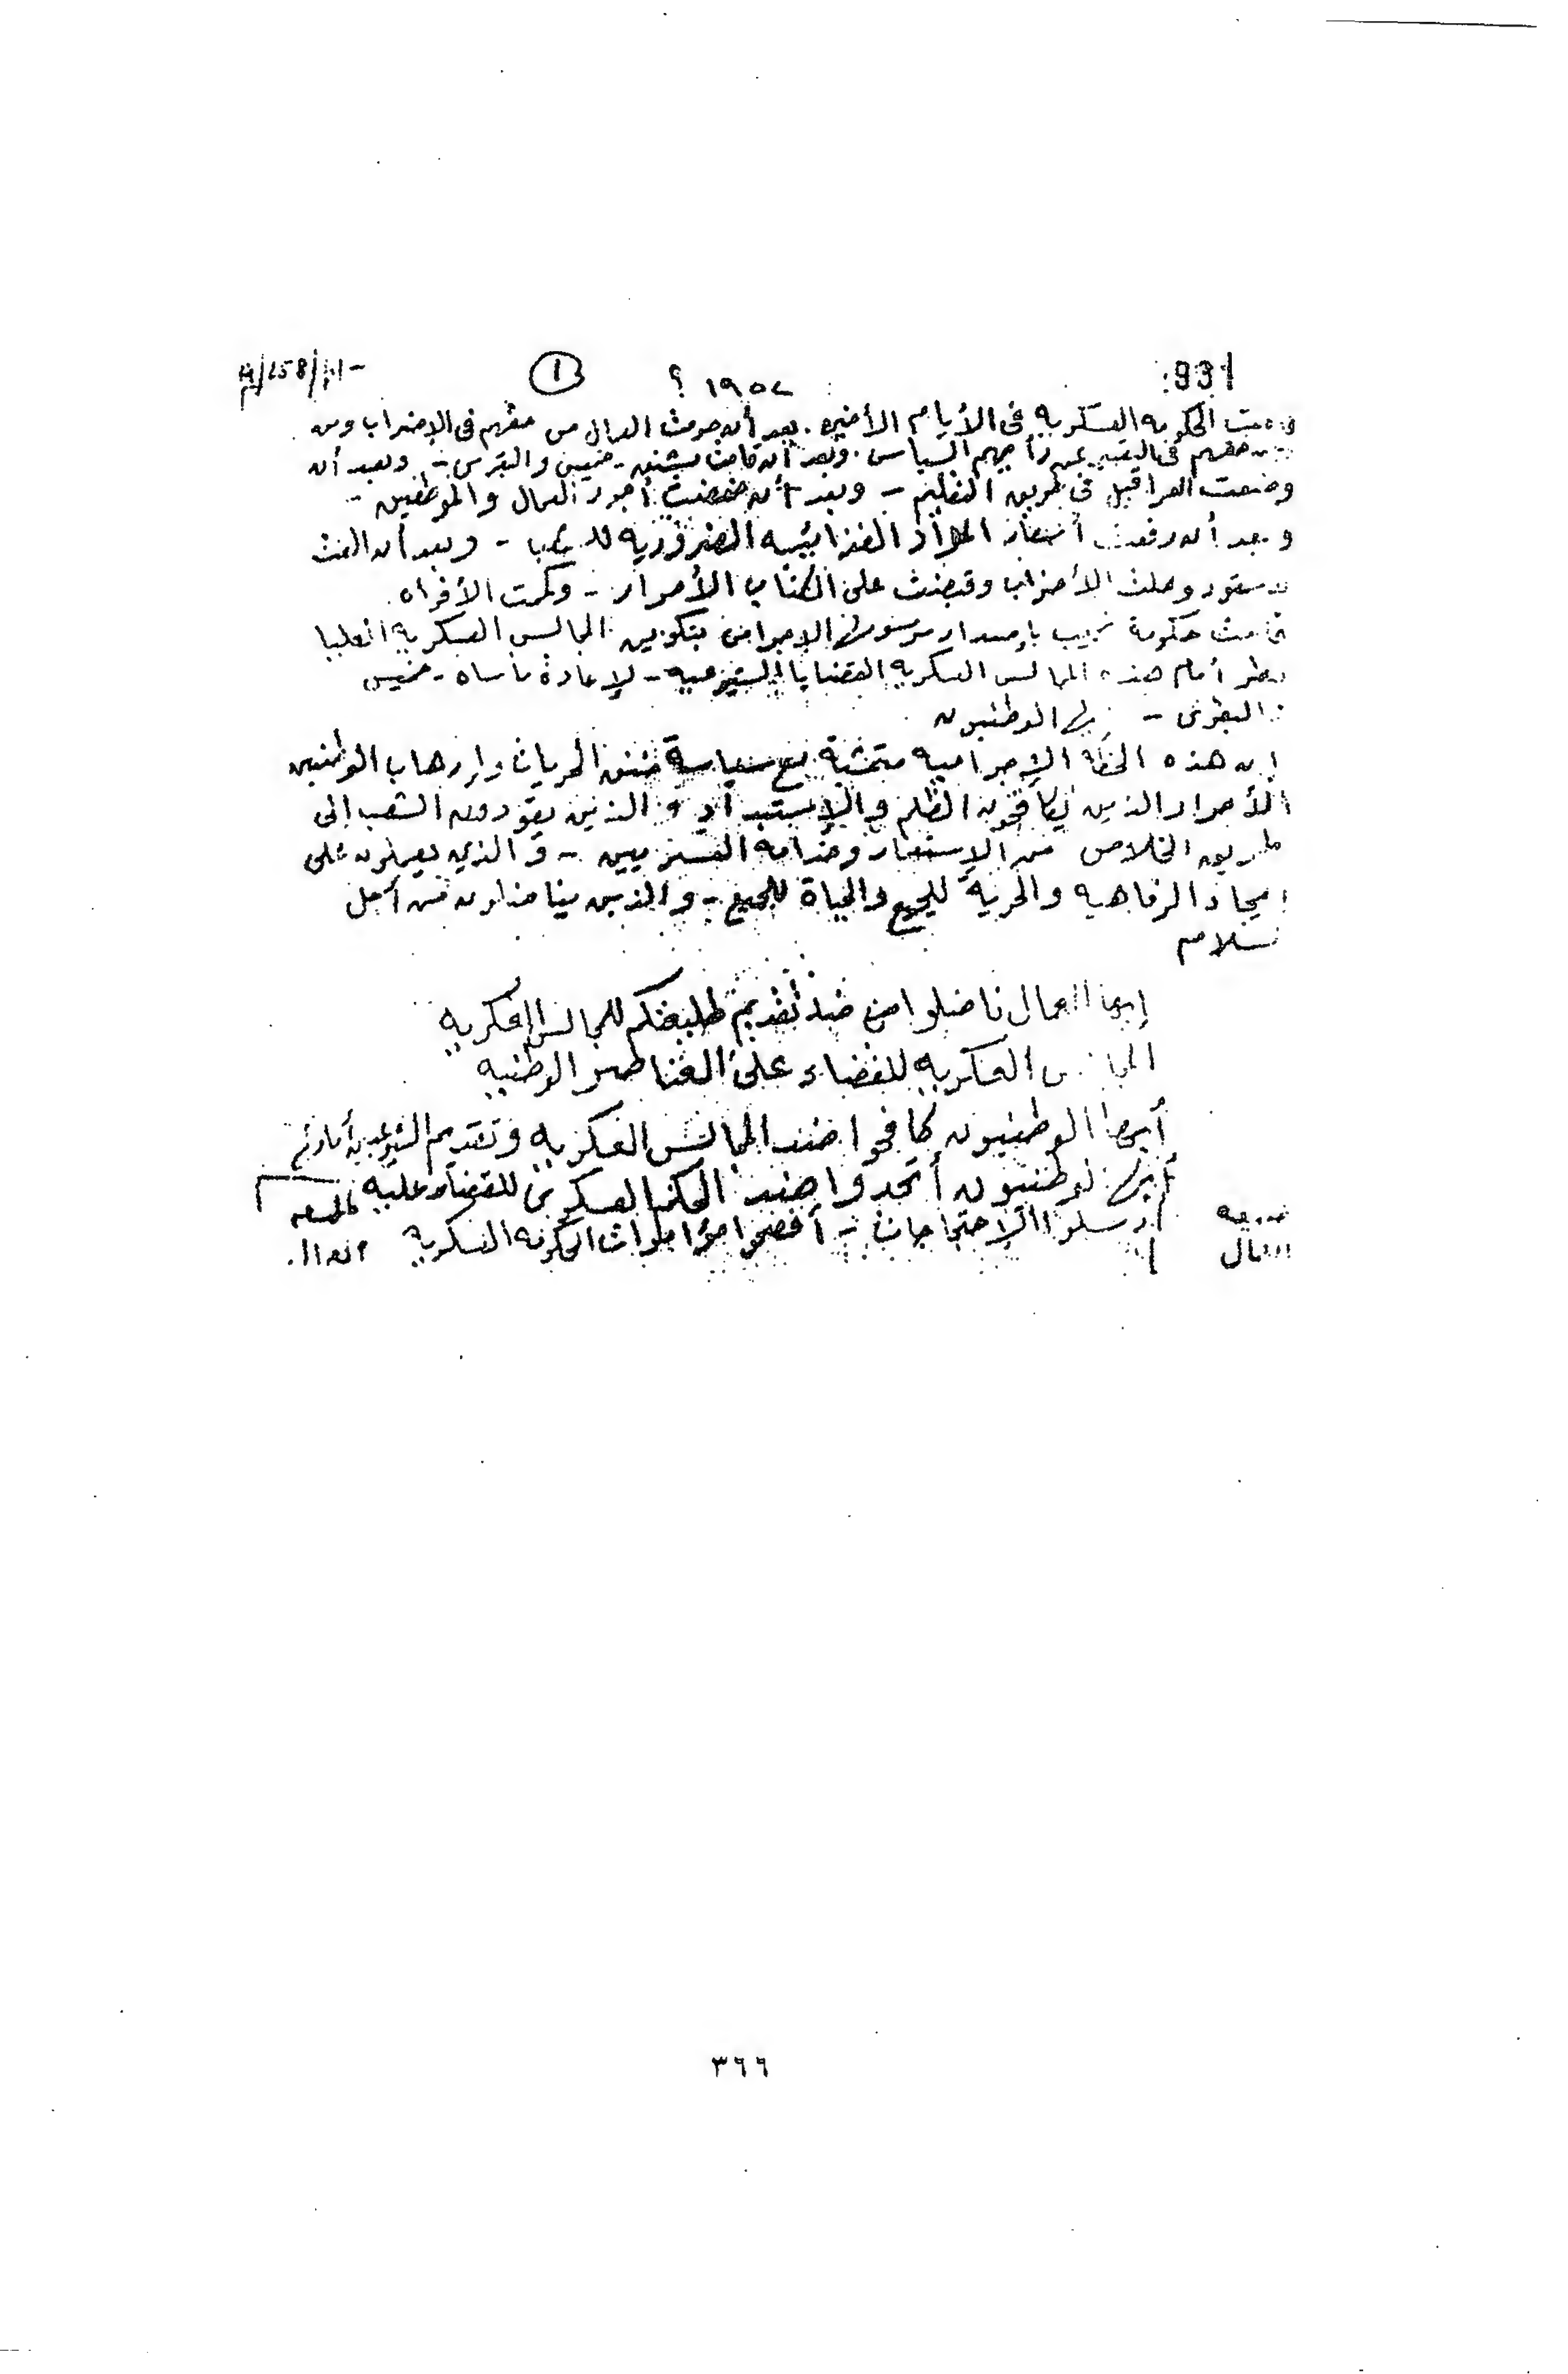 931
١٩٥٢ ؟
١
قامت الحكومه العسكريه فى الأيام الأخيره . بعد أن حرمت العمال من حقهم فى الإضراب ومن
حقهم فى التعبير عن رأيهم السياسى . وبعد أن قامت بشنق - خميس والبقرى - وبعد أن
وضعت العراقيل فى طريق التعليم - وبعد أن خفضت أجور العمال والموظفين -
وبعد أن رفعت أسعار المواد الغذائيه الضروريه للشعب - وبعد أن الغت
الدستور وحلت الأحزاب وقبضت على الكتاب الأحرار - وكممت الأفواه .
قامت حكومة نجيب بإصدار مرسومها الإجرامى بتكوين المجالس العسكريه العليا
لنظر أمام هذه المجالس العسكريه القضايا الشيوعيه - لإعادة مأساه - خميس
والبقرى - أيها الوطنيون
إن هذه الخطه الإجراميه متمشية مع سياسة خنق الحريات وإرهاب الوطنيين
الأحرار الذين يكافحون الظلم والإستبداد والذين يقودون الشعب إلى
طريق الخلاص من الإستعمار وخدامه المصريين - والذين يعملون على
إيجاد الرفاهيه والحرية للجميع والحياة للجميع - والذين يناضلون من أجل
السلام
أيها العمال ناضلوا من ضد تقديم طليعتكم للمجالس العسكريه
المجالس العسكريه للقضاء على العناصر الوطنيه
أيها الوطنيون كافحوا ضد المجالس العسكريه وتقديم الشيوعيين أمامها
أيها الوطنيون أتحدوا ضد الحكم العسكرى للقضاء عليه
أرسلوا الإحتجاجات - أفضحوا مؤامرات الحكومه العسكريه
العمال
٣٦٦